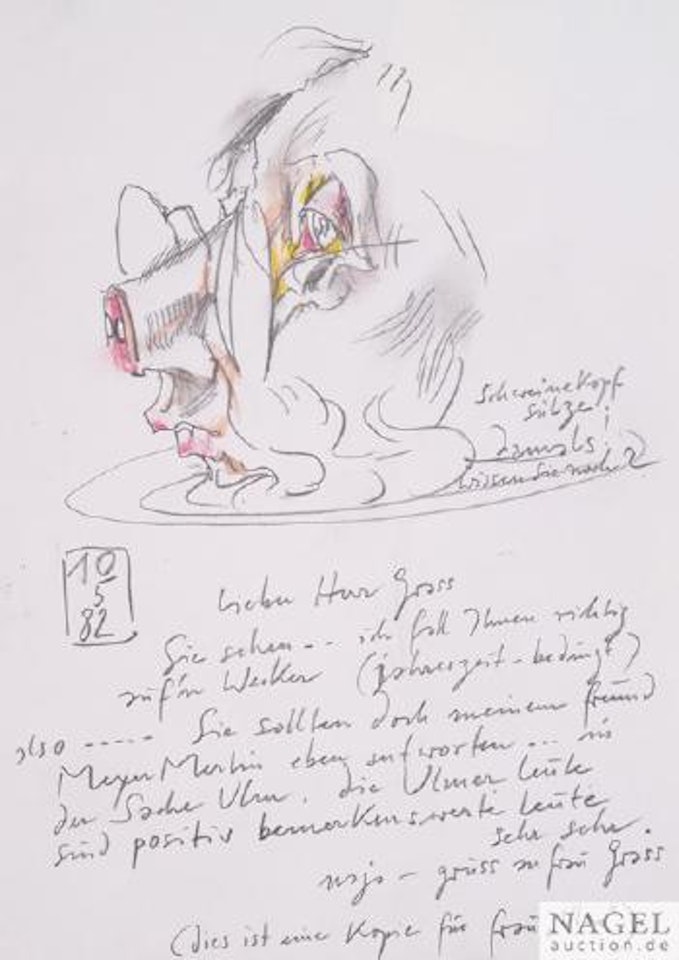 Schweinekopf
sülze!
damals.
wissen Sie noch?
10
5
82
lieber Herr Grass
Sie sehen -- ich fall Ihnen richtig
auf'n Wecker (jahreszeit-bedingt)
also ----- Sie sollten doch meinem freund
Meyer Merlin eben antworten ... in
der Sache Ulm. die Ulmer leute
sind positiv bemerkenswerte leute
sehr sehr.
naja - grüss an frau Grass
(dies ist eine Kopie für frau
NAGEL
auction.de